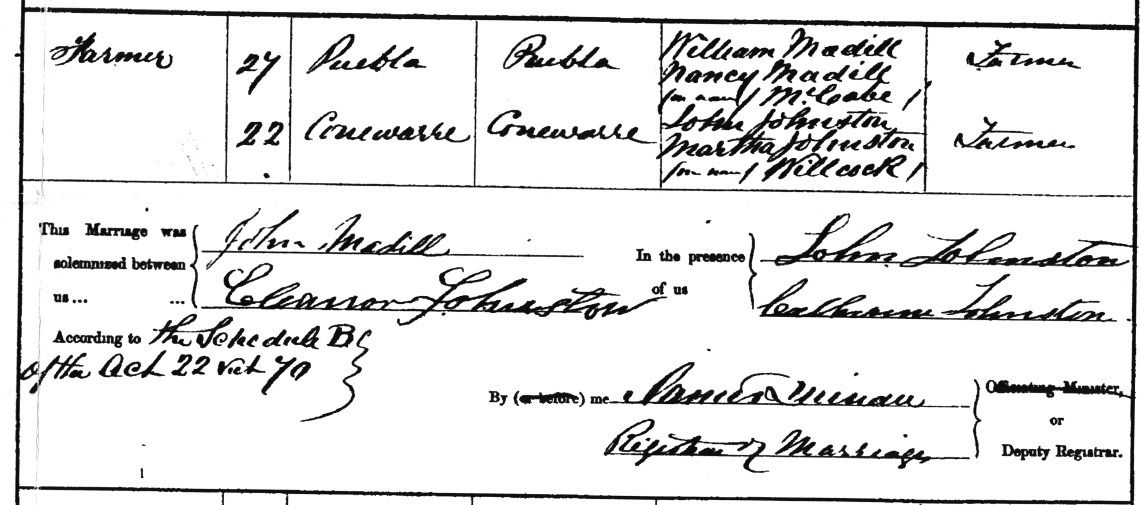 Farmer 27 Puebla Puebla William Madill Farmer
Nancy Madill
(m. name) McCabe)
22 Conewarre Conewarre John Johnston Farmer
Martha Johnston
(m. name) Willcock)
This Marriage was John Madill
solemnized between
us... ... Eleanor Johnston
In the presence John Johnston
of us
Catharine Johnston
According to the Schedule B
of the Act 22 Vict 70
By (or before) me James
Registrar of Marriages
Officiating Minister,
or
Deputy Registrar.